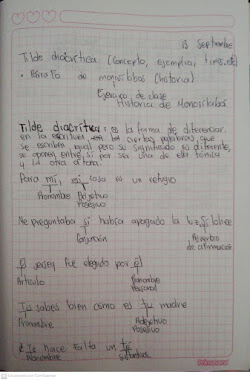 13 Septiembre
Tilde diacrítica (concepto, ejemplos, tipos, etc)
• Párrafo de monosílabos (historia)
Ejercicio de clase
Historia de Monosílabos
Tilde diacrítica: es la forma de diferenciar
en la escritura en las ciertas palabras, que
se escriben igual pero su significado es diferente,
se oponen entre sí por ser una de ella tónica
y la otra átona.
Para mí, mi casa es un refugio
Pronombre Adjetivo
Posesivo
Me preguntaba si había apagado la luz Sí lo hice
Conjunción Adverbio
de afirmación
El jersey fue elegido por él
Artículo Pronombre
Personal
Tú sabes bien como es tu madre.
Pronombre Adjetivo
Posesivo
Te hace falta un té
Pronombre Sustantivo